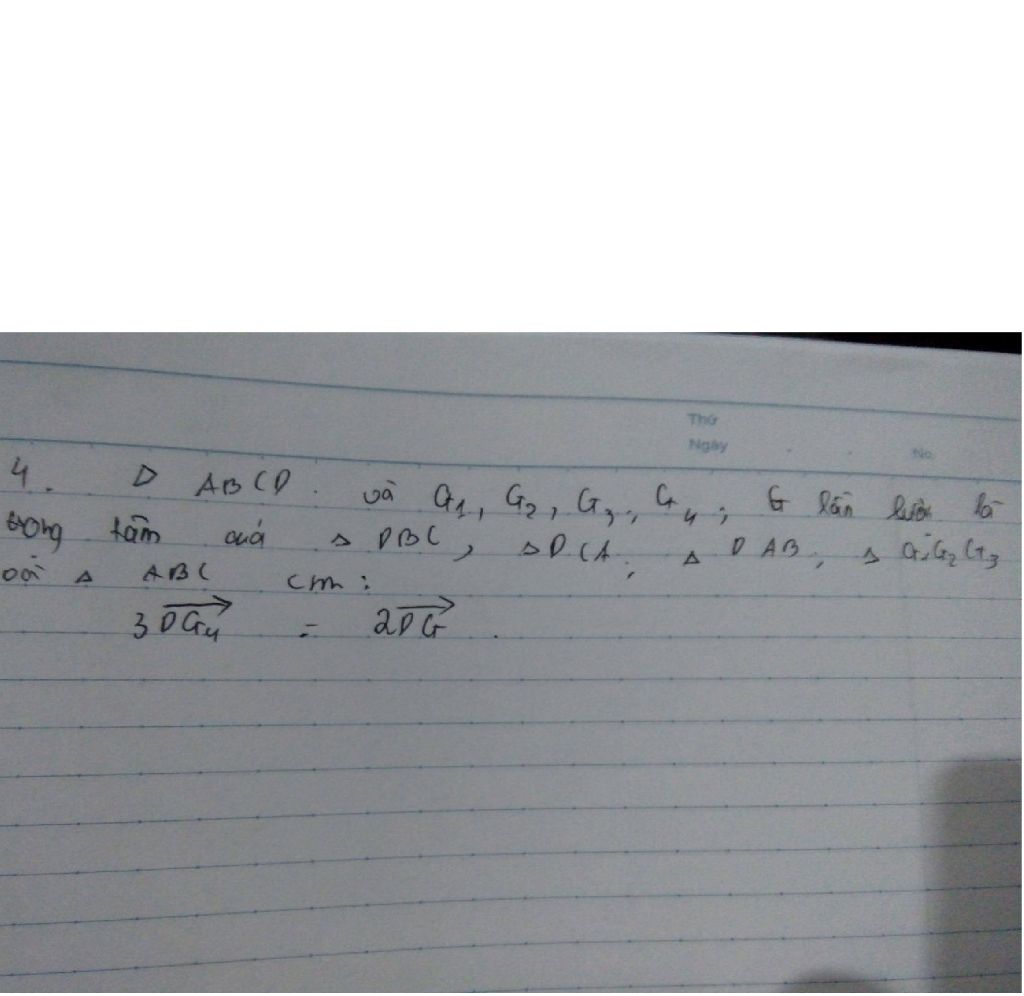 Thứ
Ngày
No.
4. D ABCD. và G1, G2, G3, G4, G lần lượt là
trọng tâm quả Δ DBC, ΔDCA, Δ DAB, Δ G1G2G3
và Δ ABC cm:
3DG4 = 2DG.